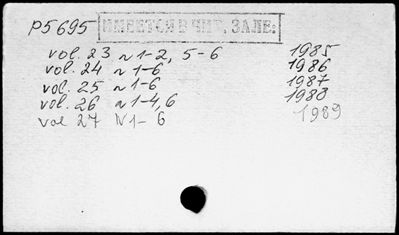 P5695 ИМЕЕТСЯ В ЧИТ. ЗАЛЕ:
vol. 23 N 1-2, 5-6 1985
vol. 24 N 1-6 1986
vol. 25 N 1-6 1987
vol. 26 N 1-4,6 1988
vol 27 N 1- 6 1989